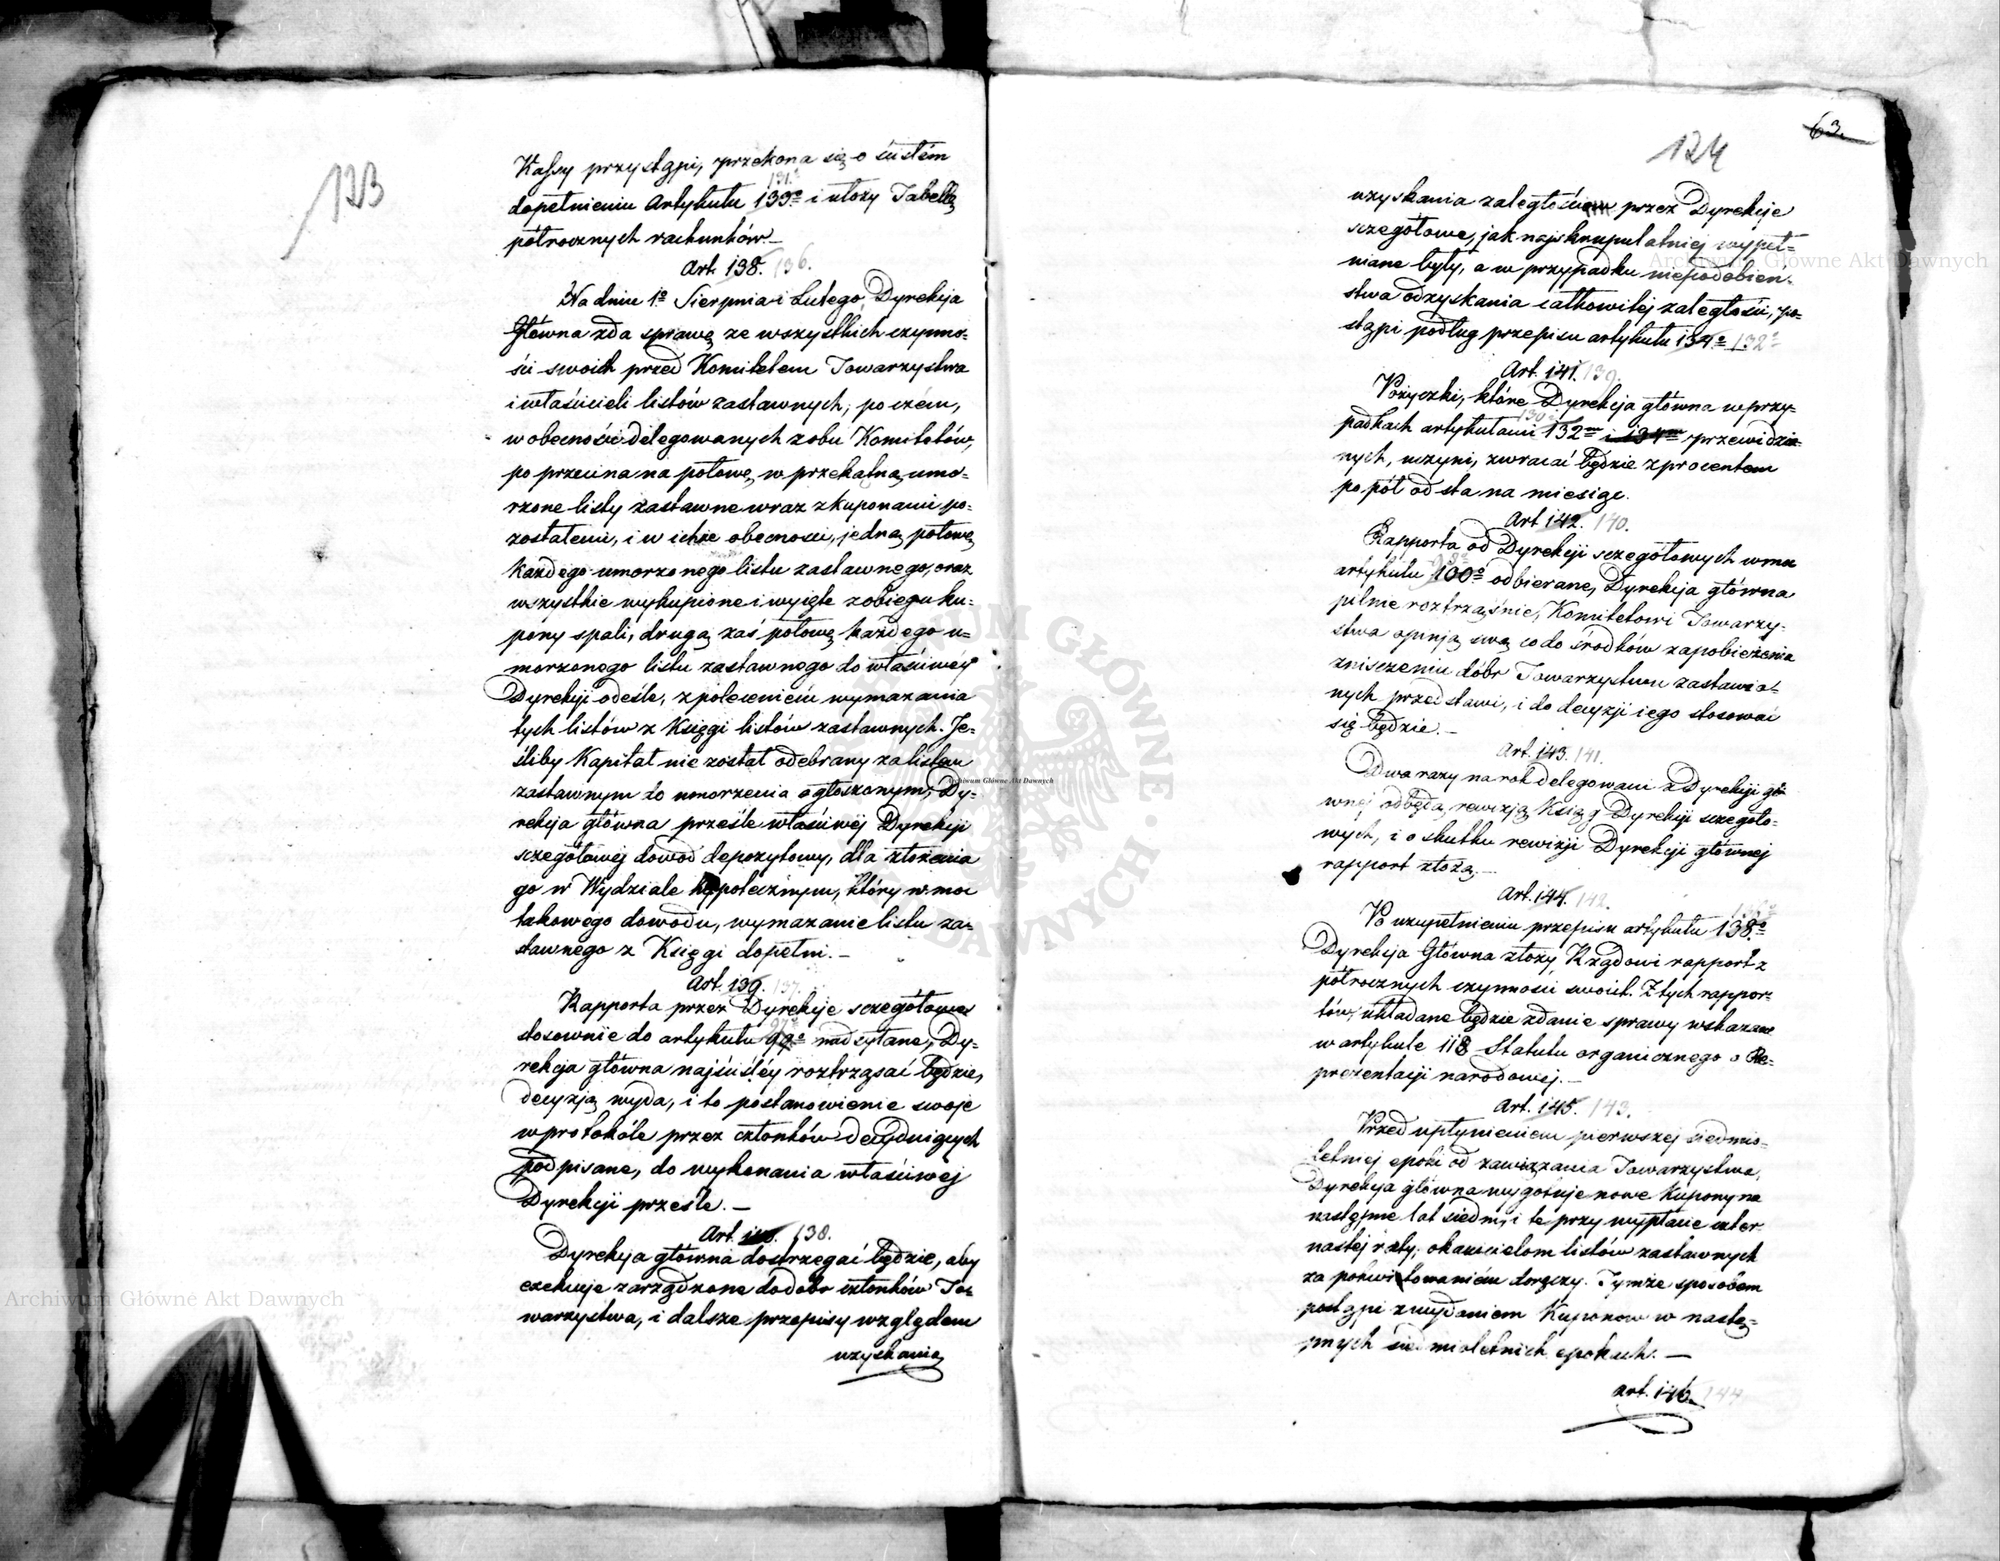 123
Kassy przystąpi, przekona się o ścisłém
131º
dopełnieniu Artykułu 133º i ułoży Tabellę
półrocznych rachunków.—
Art. 138. 136.
Na dniu 1º Sierpnia i Lutego, Dyrekcja
Główna zda sprawę ze wszystkich czynno-
ści swoich przed Komitetem Towarzystwa
i właścicieli listów zastawnych; poczém,
w obecności delegowanych z obu Komitetów,
poprzecina na połowę, w przekątną, umo-
rzone listy zastawne wraz z kuponami po-
zostałemi, i w ichże obecności, jedną połowę
każdego umorzonego listu zastawnego, oraz
wszystkie wykupione i wyięte z obiegu ku-
pony spali, drugą zaś połowę każdego u-
morzonego listu zastawnego do właściwéy
Dyrekcji odeśle, z poleceniem wymazania
tych listów z Księgi listów zastawnych. Je-
śliby Kapitał nie został odebrany za listem
zastawnym do umorzenia ogłoszonym, Dy-
rekcja główna prześle właściwéj Dyrekcji
szczegółowéj dowód depozytowy, dla złożenia
go w Wydziale hypotecznym, który w moc
takowego dowodu, wymazanie listu za-
stawnego z Księgi dopełni.—
Art. 139. 137.
Rapporta przez Dyrekcje sczegółowe
97º
stosownie do artykułu 99º nadsyłane, Dy-
rekcja główna najściśléy roztrząsać będzie,
decyzją wyda, i to postanowienie swoje
w protokóle przez członków decydujących
podpisane, do wykonania właściwéj
Dyrekcji prześle.—
Art. 140. 138.
Dyrekcja główna dostrzegać będzie, aby
exekucje zarządzone do dóbr członków To-
warzystwa, i dalsze przepisy względem
uzyskania
63.
124
uzyskania zaległości przez Dyrekcje
sczegółowe, jak najskrupulatniej wypeł-
niane były, a w przypadku niepodobień-
stwa odzyskania całkowitéj zaległości, po-
stąpi podług przepisu artykułu 134º 132º
Art. 141. 139.
Pożyczki, które Dyrekcja główna w przy-
130
padkach artykułami 132m i 134m przewidzia-
nych, uczyni, zwracać będzie z procentem
po pół od sta na miesiąc.
Art. 142. 140.
Rapporta od Dyrekcji sczegółowych w moc
98º
artykułu 100º odbierane, Dyrekcja główna
pilnie roztrząśnie, Komitetowi Towarzy-
stwa opinją swą co do środków zapobieżenia
zniszczeniu dóbr Towarzystwu zastawio-
nych przedstawi, i do decyzji iego stosować
się będzie.—
Art. 143. 141.
Dwa razy na rok delegowani z Dyrekcji głó-
wnej odbędą rewizją Ksiąg Dyrekcji sczegóło-
wych, i o skutku rewizji Dyrekcji głównej
rapport złożą.—
Art. 144. 142.
136º
Po uzupełnieniu przepisu artykułu 138.º
Dyrekcja Główna złoży Rządowi rapport z
półrocznych czynności swoich. Z tych rappor-
tów, układane będzie zdanie sprawy wskazane
w artykule 118 Statutu organicznego o Re-
prezentacji narodowej.—
Art. 145. 143.
Przed upłynieniem pierwszej siedmio-
letniej epoki od zawiązania Towarzystwa,
Dyrekcja główna wygotuje nowe Kupony na
następne lat siedm, i te przy wypłacie czter-
nastéj raty, okazicielom listów zastawnych
za pokwitowaniem doręczy. Tymże sposobem
postąpi z wydaniem Kuponów w nastę-
pnych siedmioletnich epokach.—
art. 146. 144
Archiwum Główne Akt Dawnych
Archiwum Główne Akt Dawnych
Archiwum Główne Akt Dawnych
ARCHIWUM GŁÓWNE AKT DAWNYCH